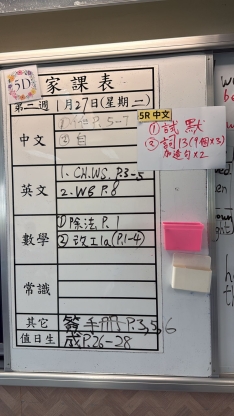 5D
家課表
第二週 1月27日(星期二)
中文
P.5-7
② 自
英文
1. CH.WS. P.3-5
2. WB P.8
數學
① 除法 P.1
② 改工1a (P.1-4)
常識
其它
簽手冊 P.3,5,6
值日生
P.26-28
5R 中文
① 試 默
② 詞13(9個x3)
加造句x2